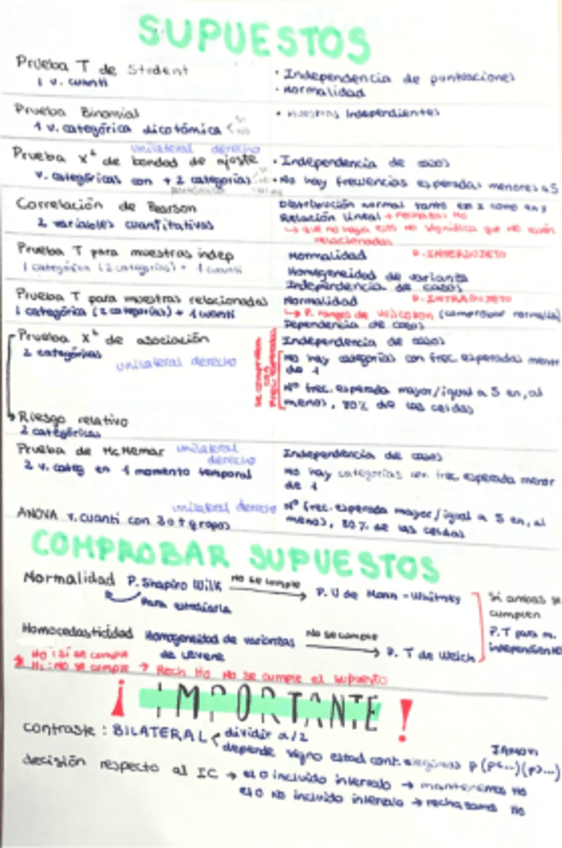 SUPUESTOS
Prueba T de Student
1 v. cuanti
· Independencia de puntuaciones
· Normalidad
Prueba Binomial
1 v. categórica dicotómica
Si
No
· Muestras independientes
unilateral derecho
Prueba X² de bondad de ajuste
v. categóricas con + 2 categorías
· Independencia de casos
· No hay frecuencias esperadas menores a 5
Correlación de Pearson
2 variables cuantitativas
Distribución normal tanto en X como en Y
Relación lineal → rechazas Ho
↳ que no haya esto no significa que no estén
relacionadas
Prueba T para muestras indep
1 categórica (2 categorías) + 1 cuanti
Normalidad
D. INTERSUJETO
Homogeneidad de varianza
Independencia de casos
Prueba T para muestras relacionadas
1 categórica (2 categorías) + 1 cuanti
Normalidad
D. INTRASUJETO
↳ P. rangos de Wilcoxon (comprobar normalidad)
Dependencia de casos
Prueba X² de asociación
2 categóricas
unilateral derecho
Se comprueba con frec. esperadas
Independencia de casos
No hay categorías con frec. esperadas menor
de 1
Nº frec. esperada mayor/igual a 5 en, al
menos, 80% de las celdas
Riesgo relativo
2 categóricas
Prueba de McNemar
unilateral
derecho
2 v. categ en 1 momento temporal
Independencia de casos
No hay categorías con frec. esperada menor
de 1
unilateral derecho
Nº frec. esperada mayor/igual a 5 en, al
menos, 80% de las celdas
ANOVA v. cuanti con 3 o + grupos
COMPROBAR SUPUESTOS
Normalidad P. Shapiro Wilk
No se cumple
→ P. U de Mann-Whitney
Para estudiarla
Si ambas se
cumplen
P. T para m.
independientes
Homocedasticidad Homogeneidad de varianzas
de Levene
No se cumple
→ P. T de Welch
Ho: sí se cumple
H1: no se cumple → Rech Ho No se cumple el supuesto
¡IMPORTANTE!
contraste: BILATERAL
dividir α/2
depende signo estad cont. elegimos p (p<...) (p>...)
JAMOVI
decisión respecto al IC → el 0 incluido intervalo → mantenemos Ho
el 0 No incluido intervalo → rechazamos Ho